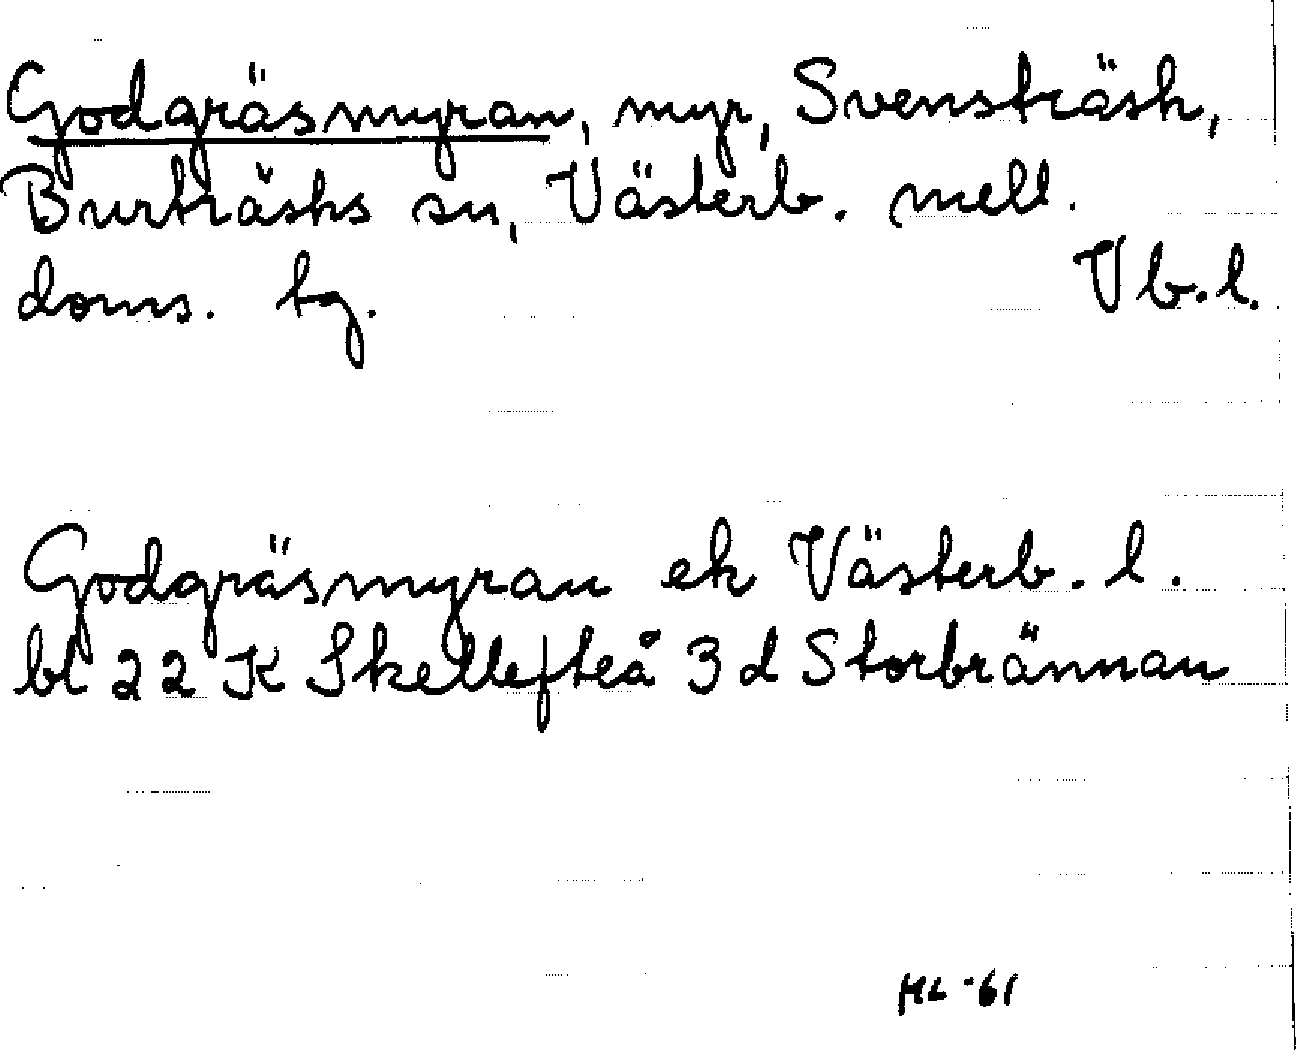 Godgräsmyran, myr, Svensträsk,
Burträsks sn, Västerb. mell.
doms. tg. Vb.l.
Godgräsmyran ek Västerb. l.
bl 22 K Skellefteå 3 d Storbrännan
HL -61